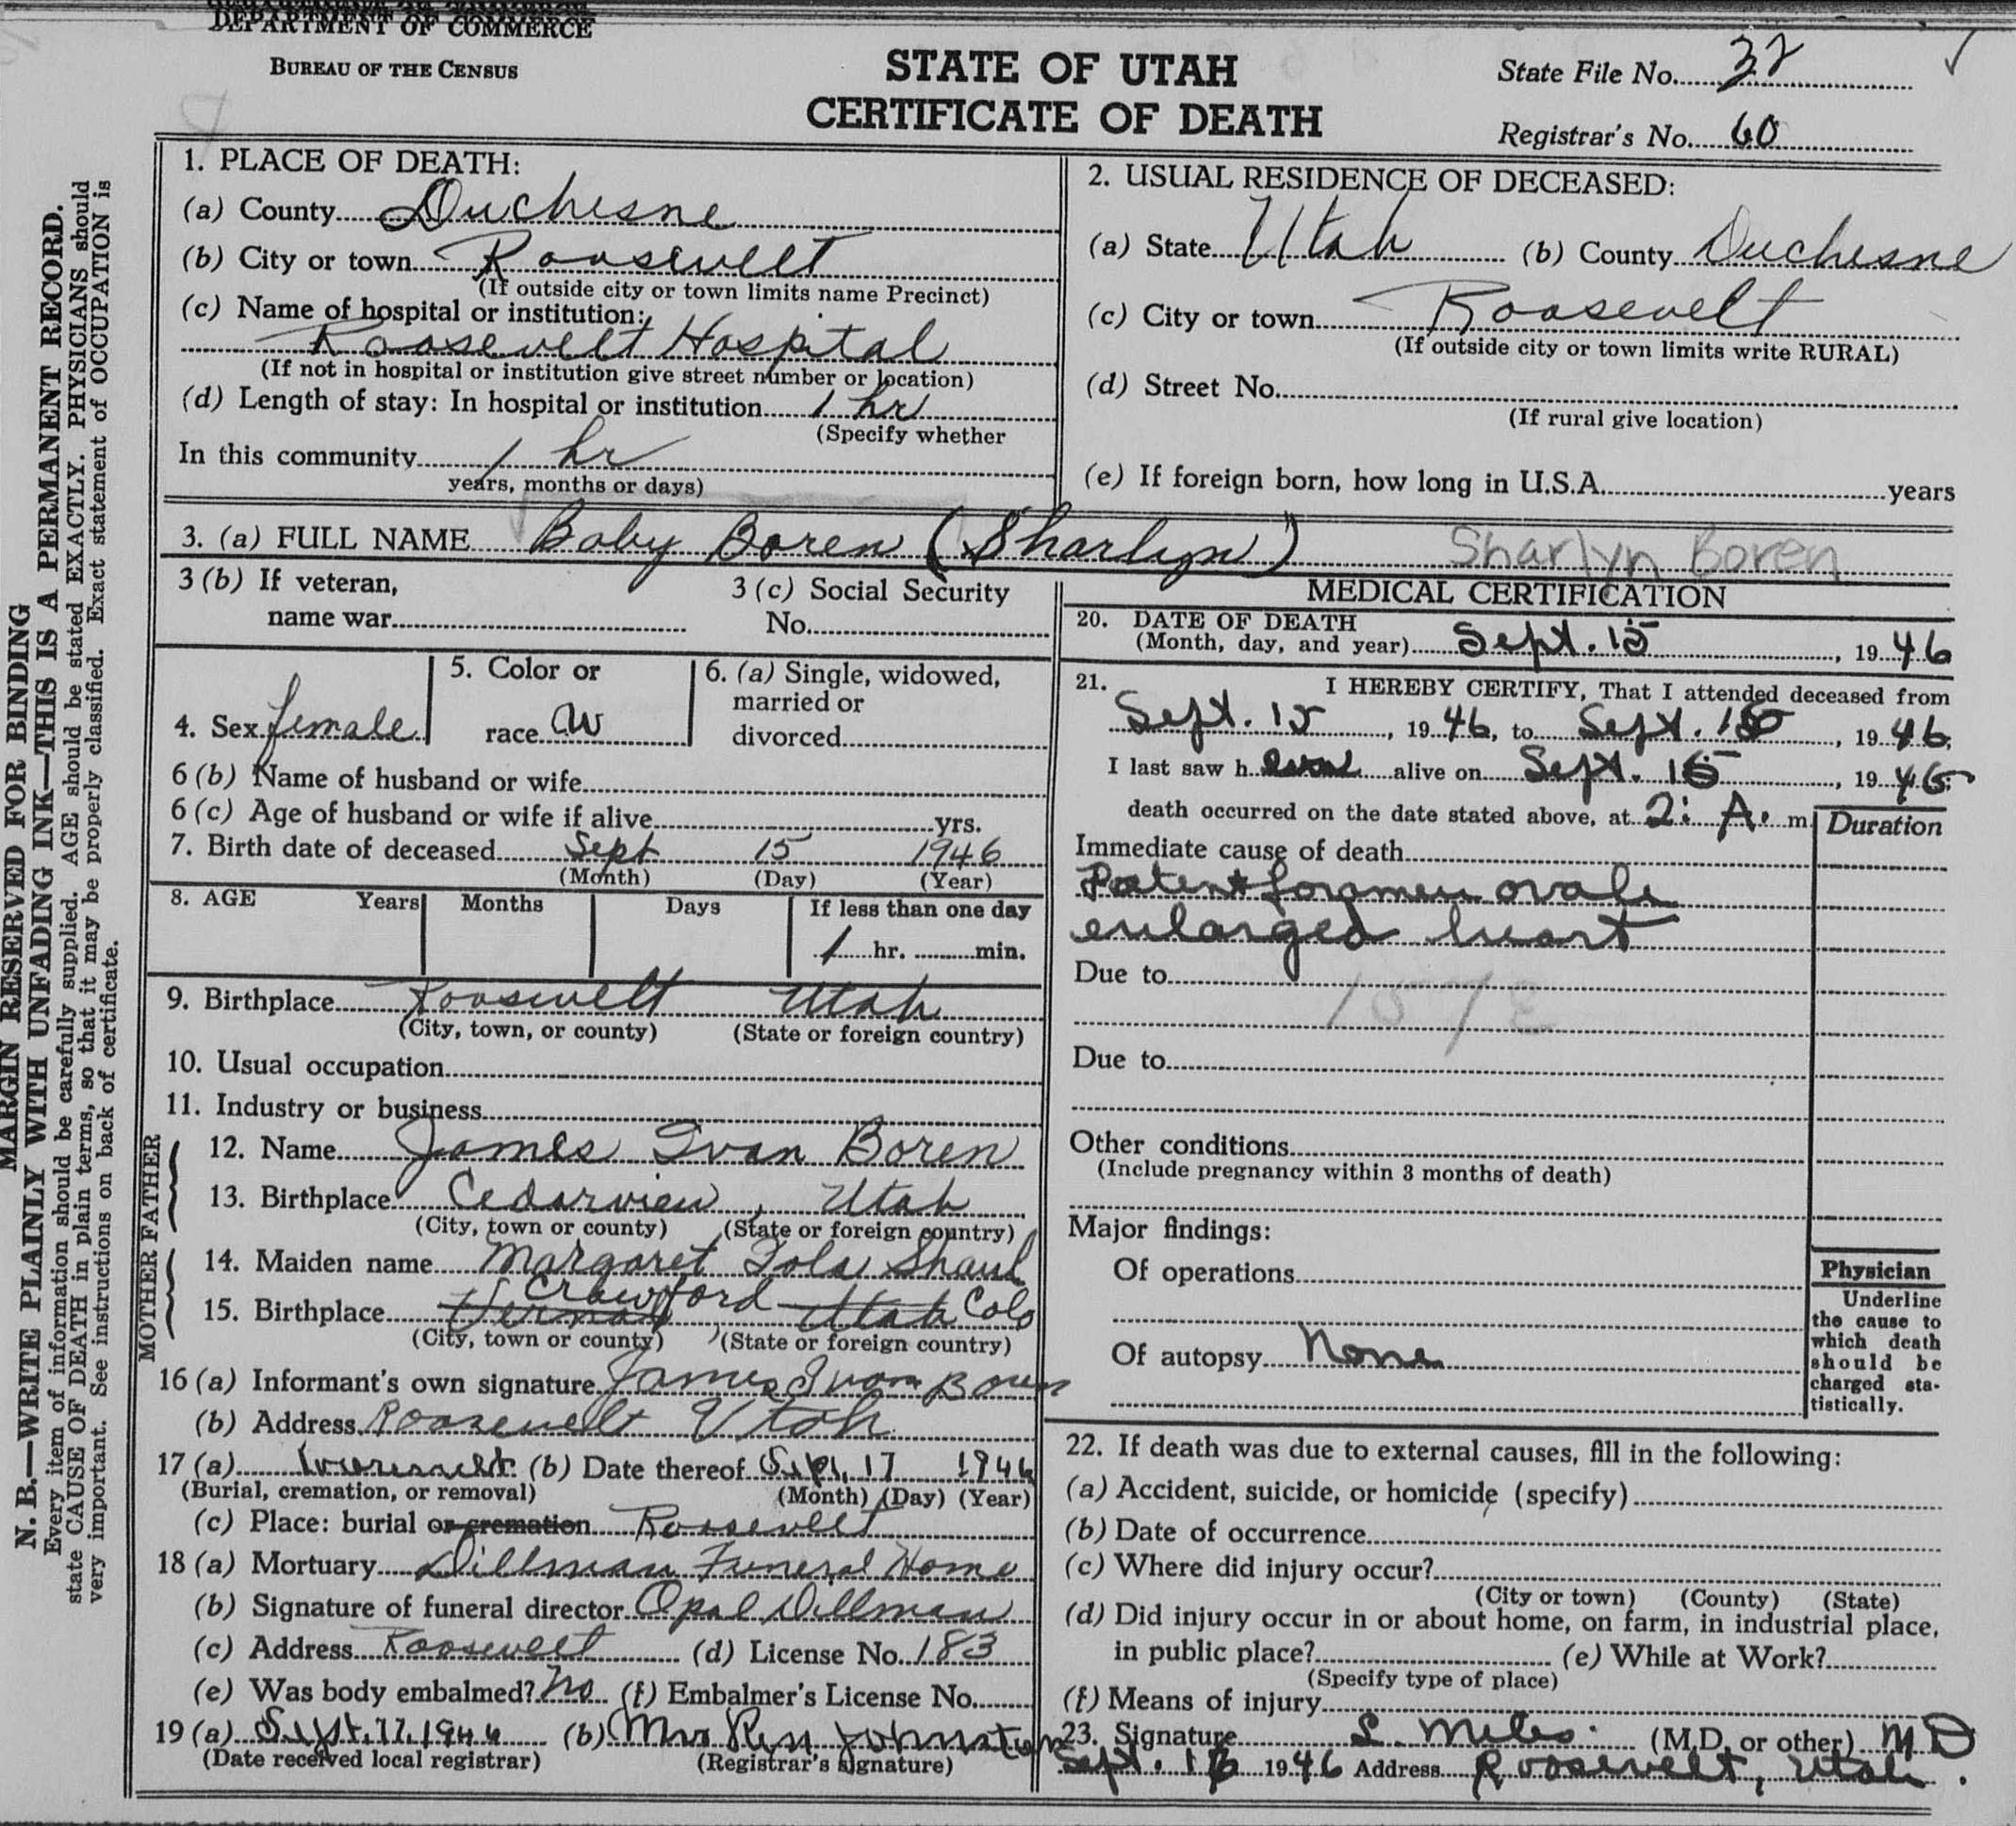 DEPARTMENT OF COMMERCE
BUREAU OF THE CENSUS
STATE OF UTAH
CERTIFICATE OF DEATH
State File No. 32
Registrar's No. 60
MARGIN RESERVED FOR BINDING
N. B.—WRITE PLAINLY WITH UNFADING INK—THIS IS A PERMANENT RECORD.
Every item of information should be carefully supplied. AGE should be stated EXACTLY. PHYSICIANS should
state CAUSE OF DEATH in plain terms, so that it may be properly classified. Exact statement of OCCUPATION is
very important. See instructions on back of certificate.
1. PLACE OF DEATH:
(a) County Duchesne
(b) City or town Roosevelt
(If outside city or town limits name Precinct)
(c) Name of hospital or institution:
Roosevelt Hospital
(If not in hospital or institution give street number or location)
(d) Length of stay: In hospital or institution 1 hr
(Specify whether
In this community 1 hr
years, months or days)
2. USUAL RESIDENCE OF DECEASED:
(a) State Utah (b) County Duchesne
(c) City or town Roosevelt
(If outside city or town limits write RURAL)
(d) Street No.
(If rural give location)
(e) If foreign born, how long in U.S.A. years
3. (a) FULL NAME Baby Boren (Sharlyn) Sharlyn Boren
3 (b) If veteran,
name war
3 (c) Social Security
No.
4. Sex female
5. Color or
race W
6. (a) Single, widowed,
married or
divorced
6 (b) Name of husband or wife
6 (c) Age of husband or wife if alive yrs.
7. Birth date of deceased Sept 15 1946
(Month) (Day) (Year)
8. AGE Years Months Days If less than one day
1 hr. min.
9. Birthplace Roosevelt Utah
(City, town, or county) (State or foreign country)
10. Usual occupation
11. Industry or business
FATHER
12. Name James Ivan Boren
13. Birthplace Cedarview, Utah
(City, town or county) (State or foreign country)
MOTHER
14. Maiden name Margaret Iola Shaul
Crawford
15. Birthplace Vernal Utah Colo
(City, town or county) (State or foreign country)
16 (a) Informant's own signature James Ivan Boren
(b) Address Roosevelt Utah
17 (a) (b) Date thereof Sept. 17 1946
(Burial, cremation, or removal) (Month) (Day) (Year)
(c) Place: burial or cremation Roosevelt
18 (a) Mortuary Dillman Funeral Home
(b) Signature of funeral director Opal Dillman
(c) Address Roosevelt (d) License No. 183
(e) Was body embalmed? No (f) Embalmer's License No.
19 (a) Sept. 17. 1946 (b) Mrs Johnston
(Date received local registrar) (Registrar's signature)
MEDICAL CERTIFICATION
20. DATE OF DEATH
(Month, day, and year) Sept. 15, 1946
21. I HEREBY CERTIFY, That I attended deceased from
Sept. 15, 1946, to Sept. 15, 1946;
I last saw h alive on Sept. 15, 1946;
death occurred on the date stated above, at 2: A. m.
Duration
Immediate cause of death
Patent foramen ovale
enlarged heart
Due to
Due to
Other conditions
(Include pregnancy within 3 months of death)
Major findings:
Of operations
Of autopsy None
Physician
Underline
the cause to
which death
should be
charged sta-
tistically.
22. If death was due to external causes, fill in the following:
(a) Accident, suicide, or homicide (specify)
(b) Date of occurrence
(c) Where did injury occur?
(City or town) (County) (State)
(d) Did injury occur in or about home, on farm, in industrial place,
in public place? (e) While at Work?
(Specify type of place)
(f) Means of injury
23. Signature L. Miles (M.D. or other) MD
Sept. 16 1946 Address Roosevelt, Utah.